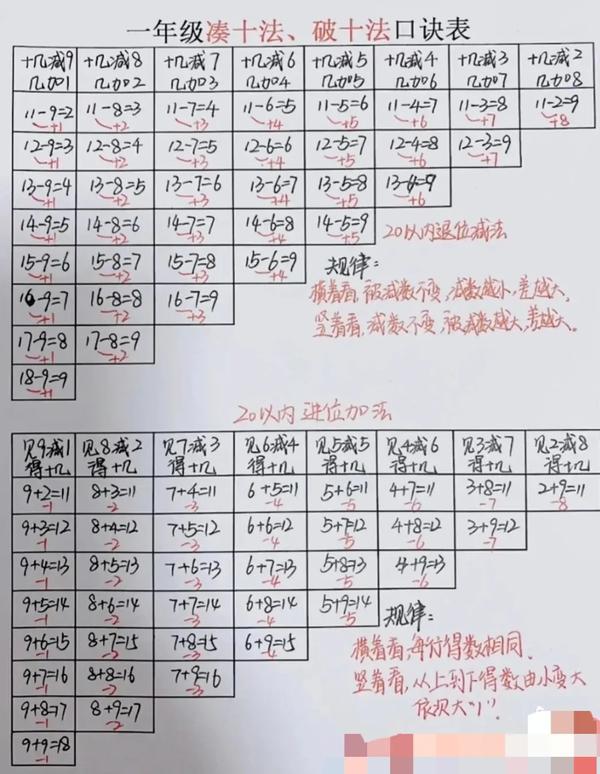 一年级凑十法、破十法口诀表
十几减9 十几减8 十几减7 十几减6 十几减5 十几减4 十几减3 十几减2
几加1 几加2 几加3 几加4 几加5 几加6 几加7 几加8
11-9=2 11-8=3 11-7=4 11-6=5 11-5=6 11-4=7 11-3=8 11-2=9
+1 +2 +3 +4 +5 +6 +7 +8
12-9=3 12-8=4 12-7=5 12-6=6 12-5=7 12-4=8 12-3=9
+1 +2 +3 +4 +5 +6 +7
13-9=4 13-8=5 13-7=6 13-6=7 13-5=8 13-4=9
+1 +2 +3 +4 +5 +6
14-9=5 14-8=6 14-7=7 14-6=8 14-5=9 20以内退位减法
+1 +2 +3 +4
15-9=6 15-8=7 15-7=8 15-6=9 规律:
+1 +2 +3 +4
横着看,被减数不变,减数越小,差越大。
16-9=7 16-8=8 16-7=9
+1 +2 +3
竖着看,减数不变,被减数越大,差越大。
17-9=8 17-8=9
+1 +2
18-9=9
+1
20以内进位加法
见9减1 见8减2 见7减3 见6减4 见5减5 见4减6 见3减7 见2减8
得十几 得十几 得十几 得十几 得十几 得十几 得十几 得十几
9+2=11 8+3=11 7+4=11 6+5=11 5+6=11 4+7=11 3+8=11 2+9=11
-1 -2 -3 -4 -5 -6 -7 -8
9+3=12 8+4=12 7+5=12 6+6=12 5+7=12 4+8=12 3+9=12
-1 -2 -3 -4 -5 -6 -7
9+4=13 8+5=13 7+6=13 6+7=13 5+8=13 4+9=13
-1 -2 -3 -4 -5 -6
9+5=14 8+6=14 7+7=14 6+8=14 5+9=14 规律:
-1 -2 -3 -4 -5
9+6=15 8+7=15 7+8=15 6+9=15 横着看,每行得数相同.
-1 -2 -3 -4
9+7=16 8+8=16 7+9=16 竖着看,从上到下得数由小变大
-1 -2 -3
9+8=17 8+9=17 依次大"1".
-1 -2
9+9=18
-1